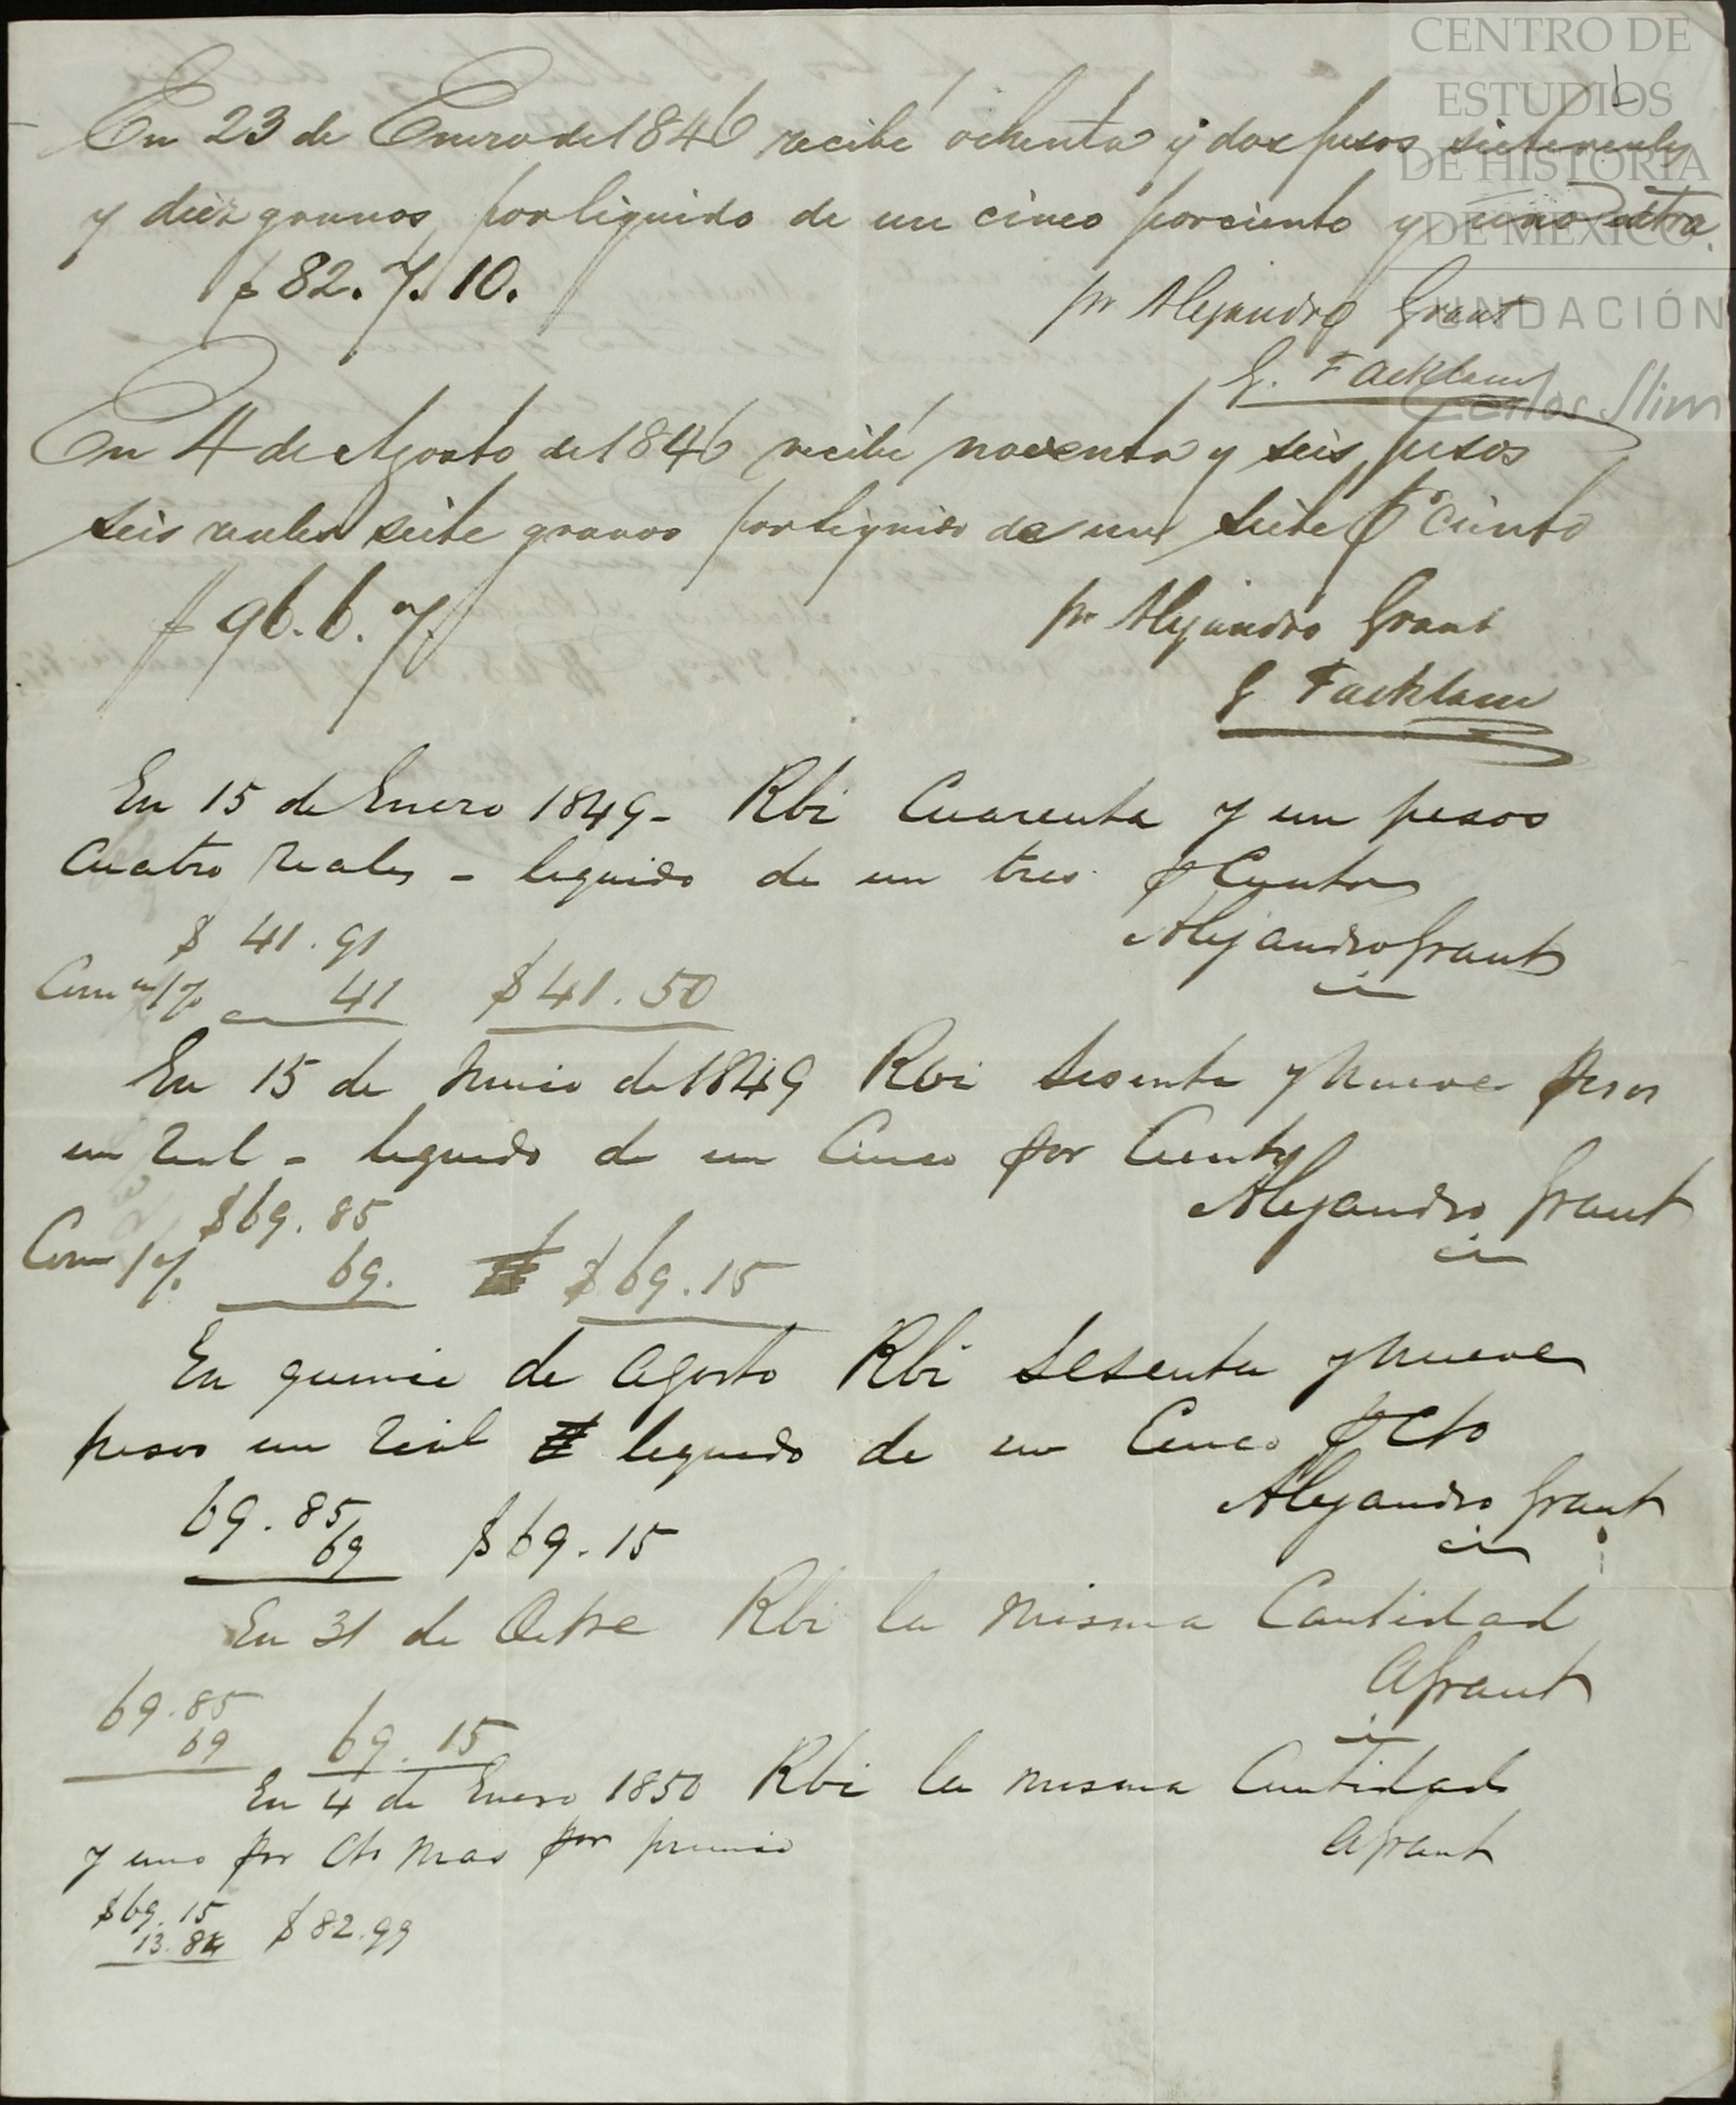 CENTRO DE
ESTUDIOS
DE HISTORIA
DE MEXICO
FUNDACIÓN
Carlos Slim
En 23 de Enero de 1846 recibí ochenta y dos pesos siete reales
y diez granos, por liquido de un cinco por ciento y uno extra.
$ 82. 7. 10.
pr Alejandro Grant
G. Facklam
En 4 de Agosto de 1846 recibí noventa y seis pesos
seis reales siete granos por liquido de un siete pr ciento
$ 96. 6. 7.
pr Alejandro Grant
G Facklam
En 15 de Enero 1849 - Rbi Cuarenta y un pesos
Cuatro reales - liquido de un tres p Ciento
$ 41. 91
Alejandro Grant
Comn 1% 41 $ 41. 50
En 15 de Junio de 1849 Rbi Sesenta y nueve pesos
un real - liquido de un Cinco por Ciento
$ 69. 85
Alejandro Grant
Com 1% 69. $ 69. 15
En quince de Agosto Rbi Sesenta y nueve
pesos un real liquido de un Cinco p Cto
69. 85
Alejandro Grant
69 $ 69. 15
En 31 de Octre Rbi la misma Cantidad
AGrant
69. 85
69 69. 15
En 4 de Enero 1850 Rbi la misma Cantidad
y uno por Cto mas por premio
AGrant
$ 69. 15
13. 84 $ 82. 99